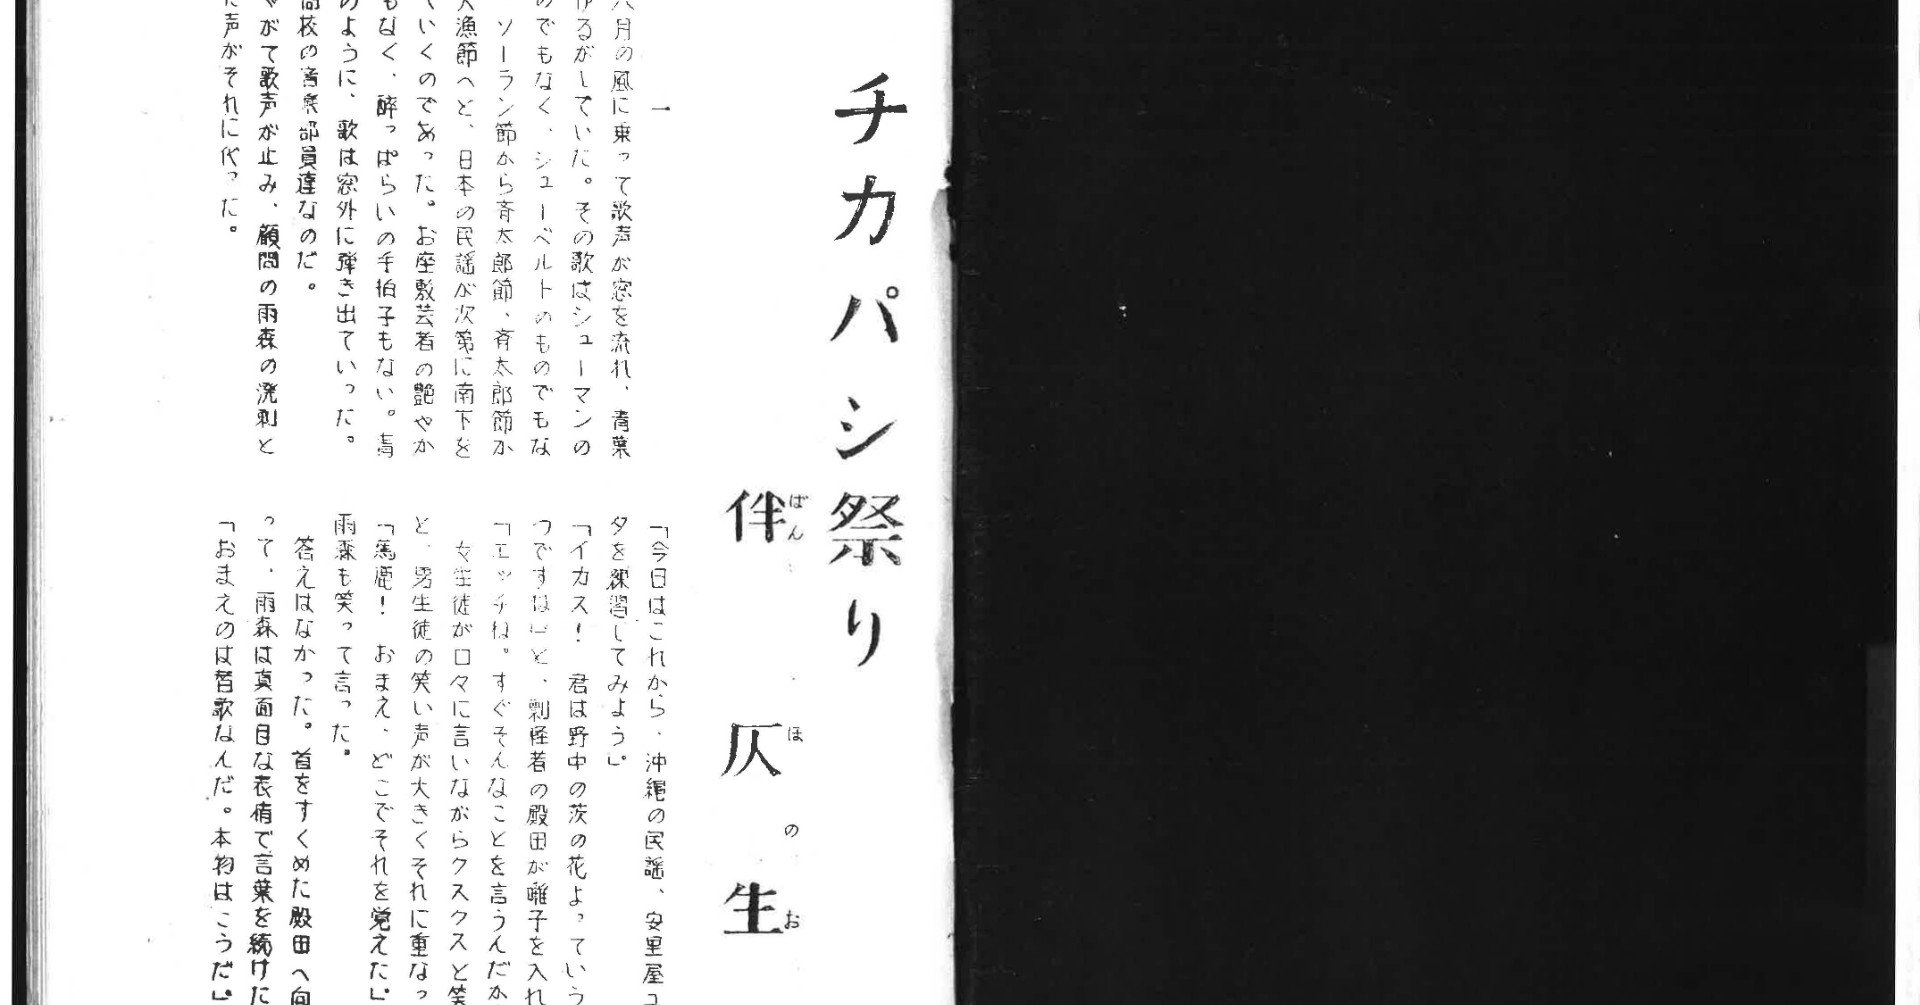 チカパシ祭り
伴仄生
ばん
ほのお
一
八月の風に乗って歌声が窓を流れ、青葉
るがしていた。その歌はシューマンの
のでもなく、シューベルトのものでもな
ソーラン節から斉太郎節、斉太郎節か
大漁節へと、日本の民謡が次第に南下を
ていくのであった。お座敷芸者の艶やか
もなく、酔っぱらいの手拍子もない。青
のように、歌は窓外に弾き出ていった。
高校の音楽部員達なのだ。
やがて歌声が止み、顧問の雨森の溌剌と
た声がそれに代った。
「今日はこれから、沖縄の民謡、安里屋ユ
タを練習してみよう」
「イカス! 君は野中の茨の花よっていう
つですね」と、剽軽者の殿田が囃子を入れ
「エッチね。すぐそんなことを言うんだか
女生徒が口々に言いながらクスクスと笑
と、男生徒の笑い声が大きくそれに重なっ
「馬鹿! おまえ、どこでそれを覚えた」
雨森も笑って言った。
答えはなかった。首をすくめた殿田へ向
って、雨森は真面目な表情で言葉を続けた
「おまえのは替歌なんだ。本物はこうだ」